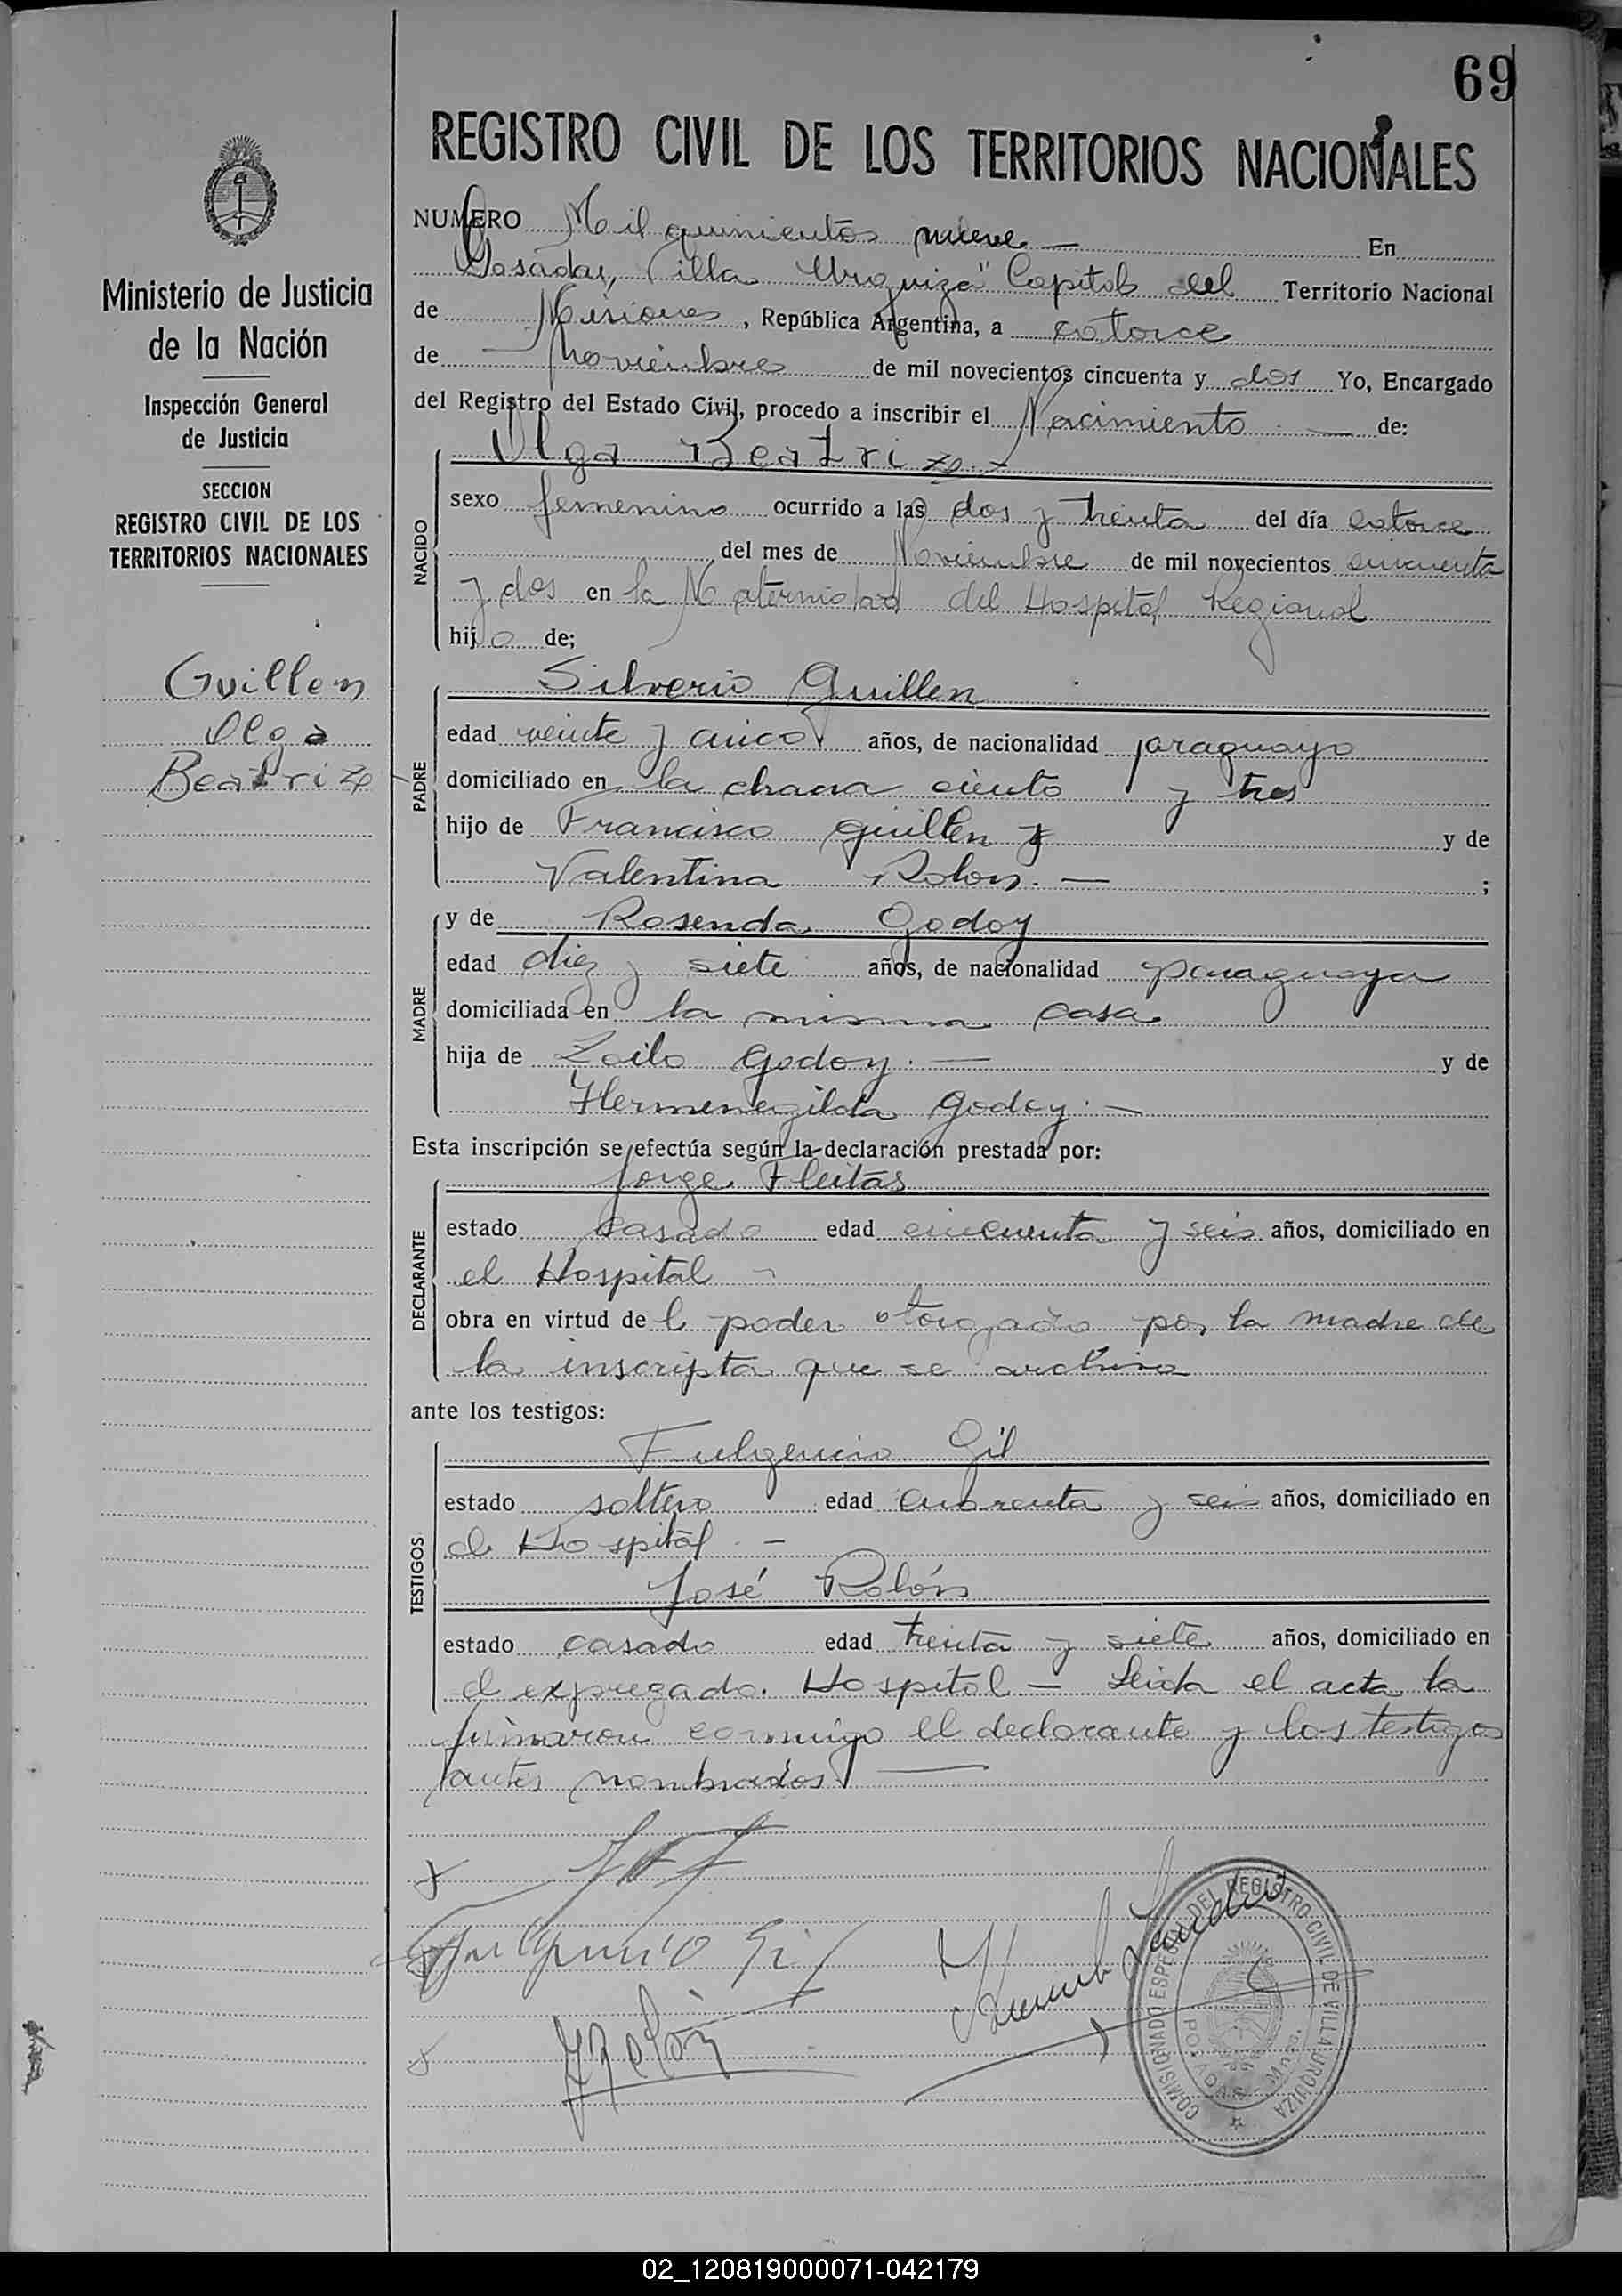 69
REGISTRO CIVIL DE LOS TERRITORIOS NACIONALES
Ministerio de Justicia
de la Nación
Inspección General
de Justicia
SECCION
REGISTRO CIVIL DE LOS
TERRITORIOS NACIONALES
Guillen
Olga
Beatriz
NUMERO Mil quinientos nueve — En
Posadas, Villa Urquiza" Capital del Territorio Nacional
de Misiones, República Argentina, a catorce
de Noviembre de mil novecientos cincuenta y dos Yo, Encargado
del Registro del Estado Civil, procedo a inscribir el Nacimiento — de:
NACIDO
Olga Beatriz —
sexo femenino ocurrido a las dos y treinta del día catorce
del mes de Noviembre de mil novecientos cincuenta
y dos en la Maternidad del Hospital Regional
hija de;
PADRE
Silverio Guillen
edad veinte y cinco años, de nacionalidad paraguayo
domiciliado en la chacra ciento y tres
hijo de Francisco Guillen y y de
Valentina Rolon. — ;
MADRE
y de Rosenda Godoy
edad diez y siete años, de nacionalidad paraguaya
domiciliada en la misma casa
hija de Zoilo Godoy. — y de
Hermenegilda Godoy. —
Esta inscripción se efectúa según la declaración prestada por:
DECLARANTE
Jorge Fleitas
estado casado edad cincuenta y seis años, domiciliado en
el Hospital —
obra en virtud de l poder otorgado por la madre de
la inscripta que se archiva
ante los testigos:
TESTIGOS
Fulgencio Gil
estado soltero edad cuarenta y seis años, domiciliado en
el Hospital. —
José Rolón
estado casado edad treinta y siete años, domiciliado en
el expregado. Hospital — Leida el acta la
firmaron conmigo el declarante y los testigos
antes nombrados —
Fulgencio Gil
JRolón
COMISIONADO ESPECIAL DEL REGISTRO CIVIL DE VILLA URQUIZA
POSADAS - Mnes.
02_120819000071-042179